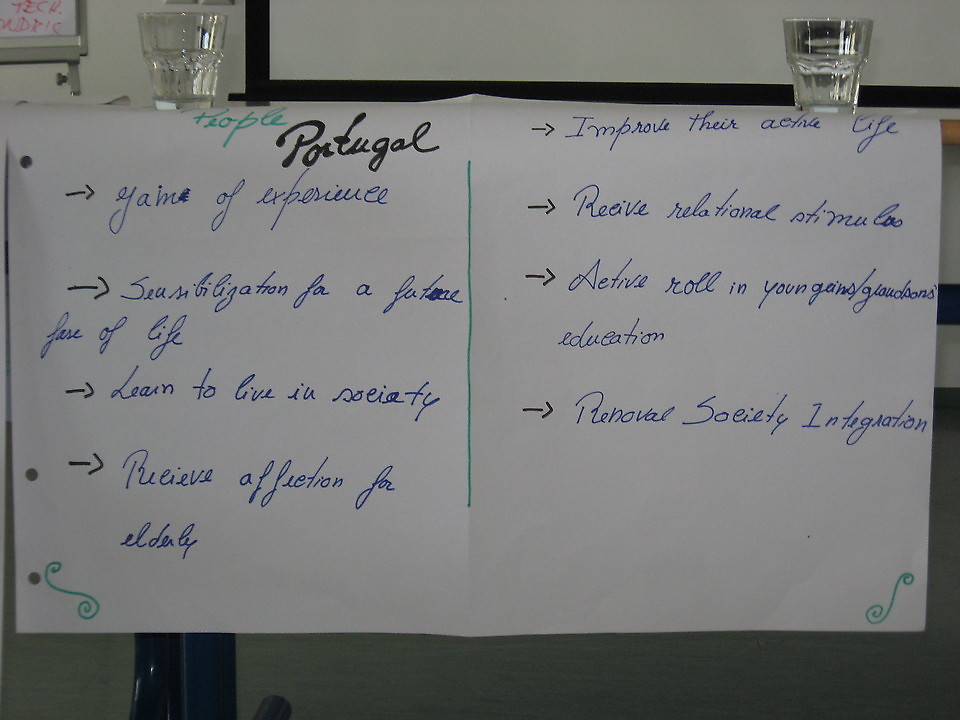 TECH.
People
Portugal
→ Gaim of experience
→ Sensibilization for a future
fase of life
→ Learn to live in society
→ Recieve affection for
elderly
→ Improve their active life
→ Recive relational stimulus
→ Active roll in youngeins/grandsons'
education
→ Renoval Society Integration